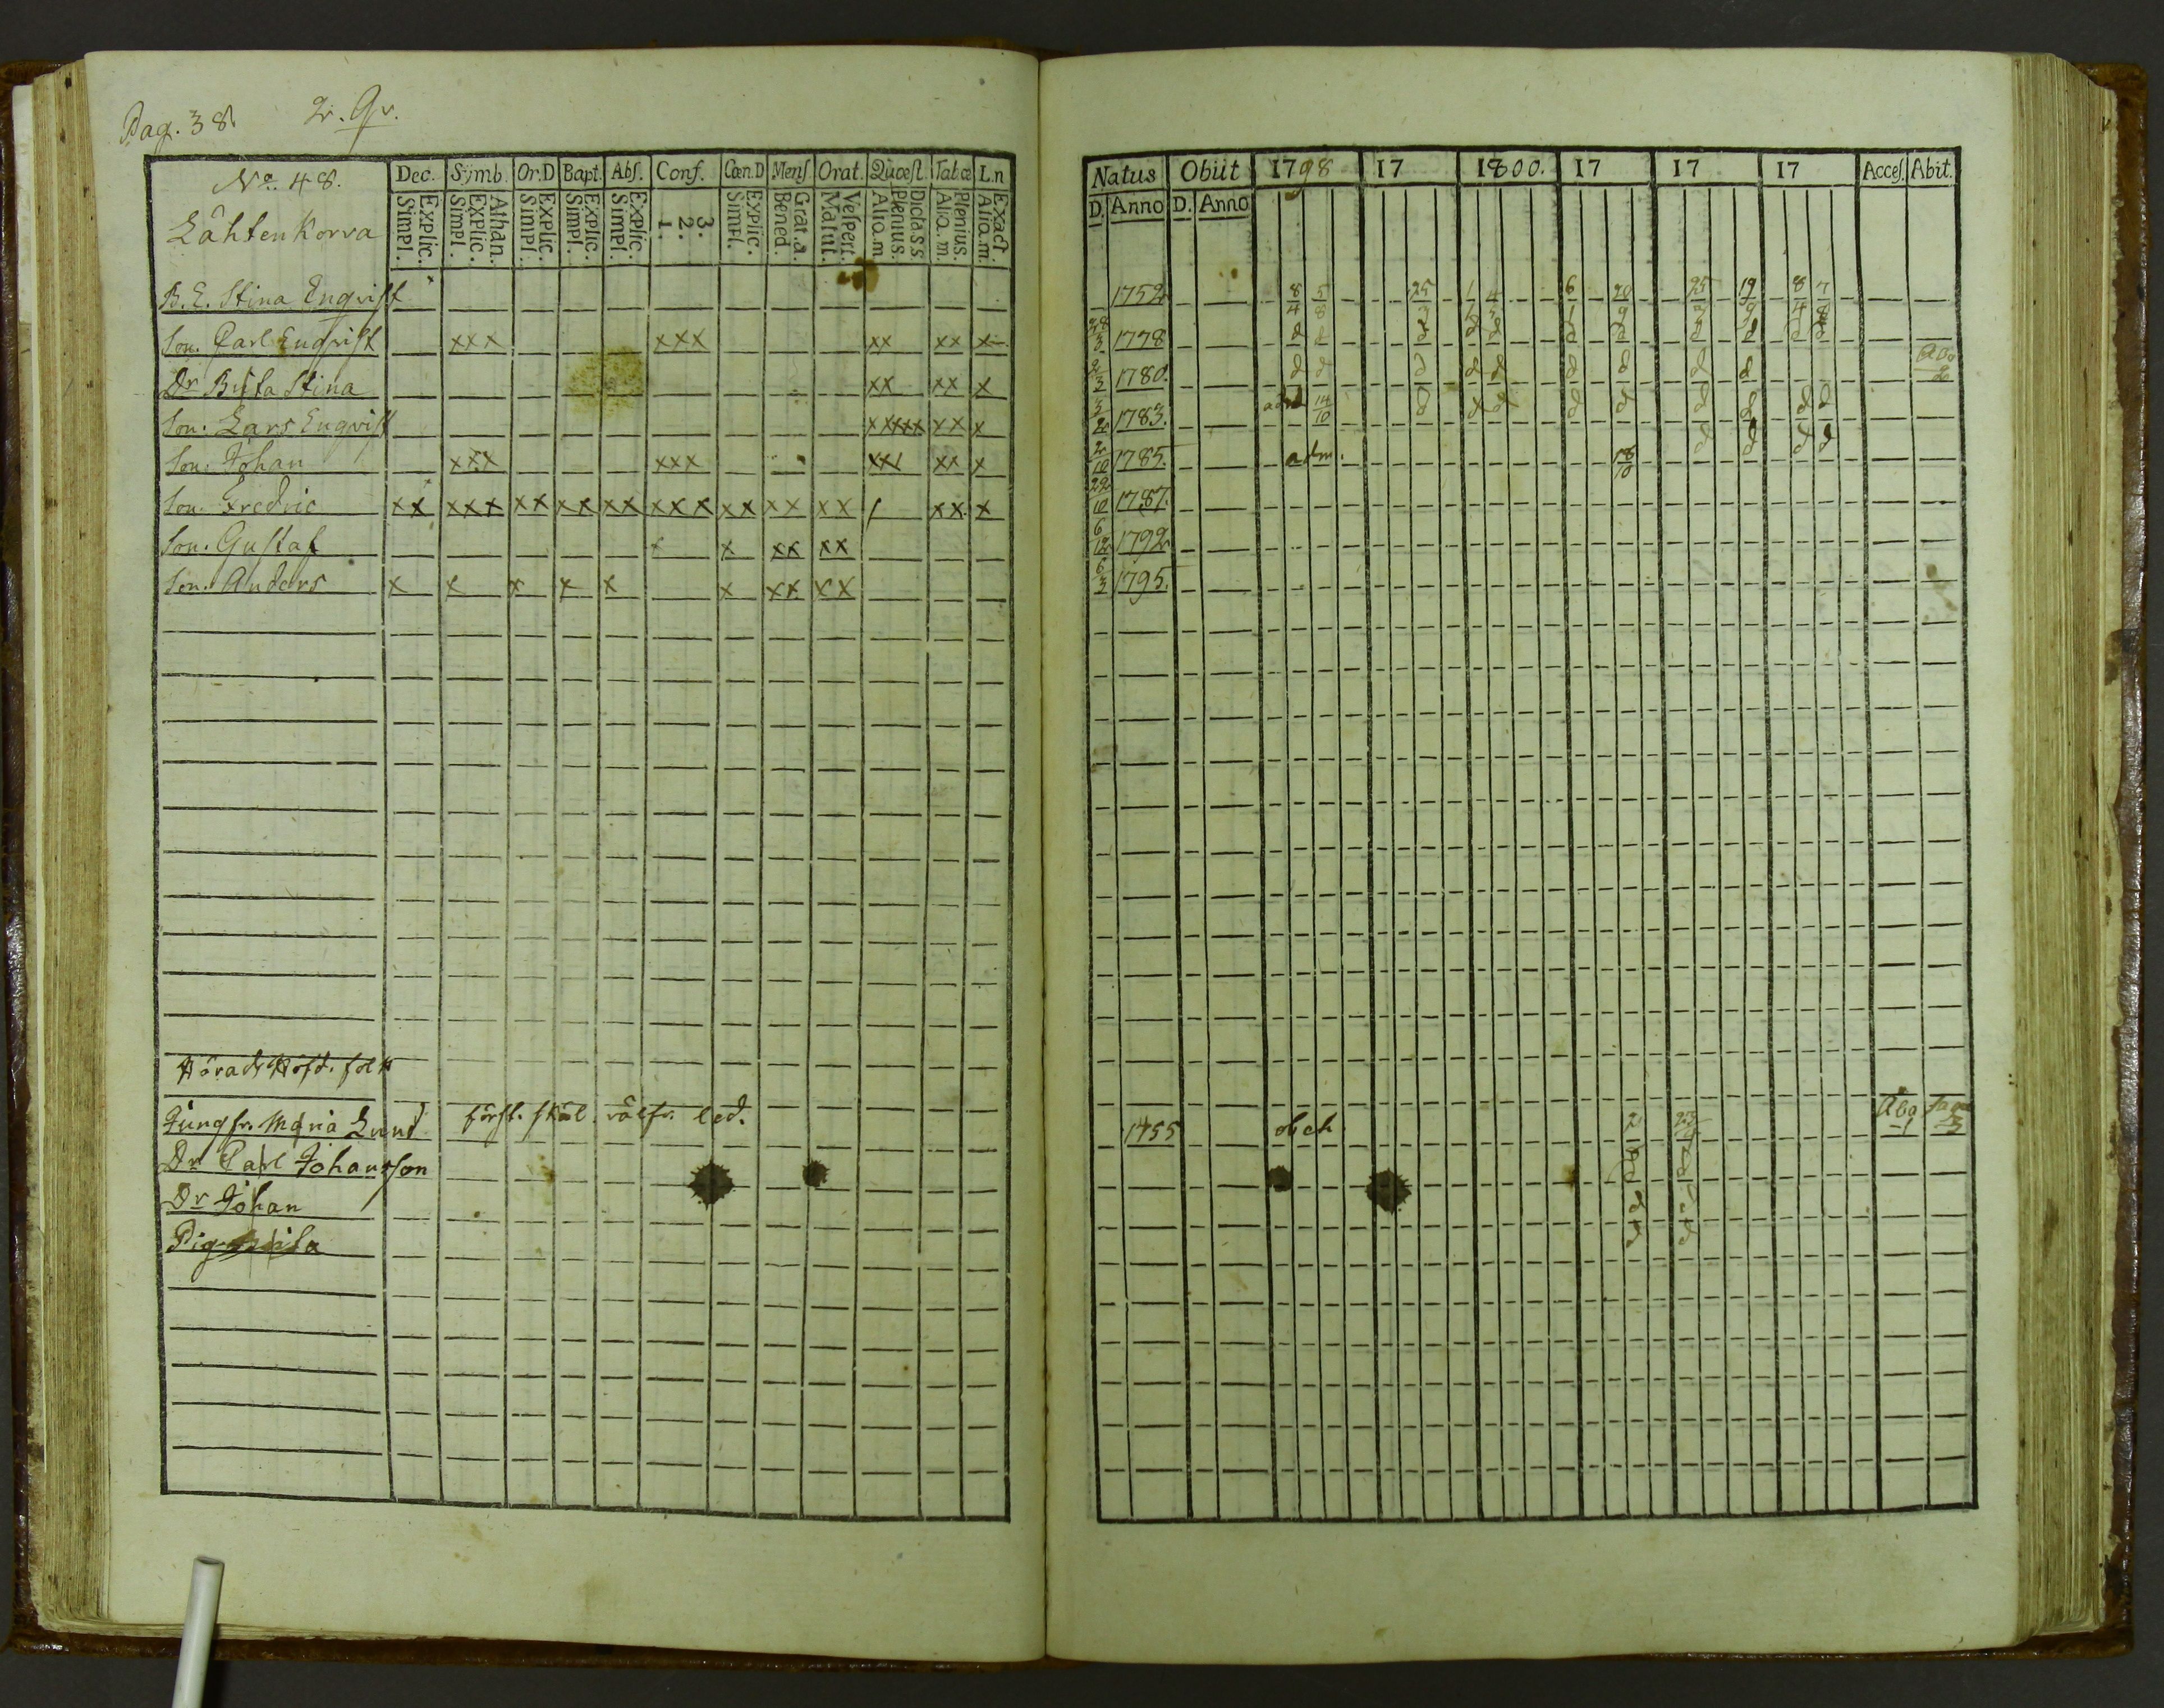 Pag. 38. 2. Qv.
No. 48. Dec. Symb. Or.D Bapt. Abſ. Conf. Cœn.D Menſ Orat. Quœſt. Tabœ L.n
Lähtenkorva Explic. Simpl. Athan. Explic. Simpl. Explic. Simpl. Explic. Simpl. Explic. Simpl. 3. 2. 1. Explic. Simpl. Grat.a. Bened. Veſpert. Matut. Dicta.s.s Plenius. Alio.m Plenius. Alio.m. Exact. Alio.m.
B. E. Stina Enqvist
Son. Carl Enqvist xxx xxx xx xx x
Dr Brita Stina xx xx x
Son. Lars Enqvist xxxxx xx x
Son. Johan xxx xxx xxx xx x
Son. Fredric xx xxx xx xx xx xxx xx xx xx xx x
Son. Gustaf x x xx xx
Son. Anders x x x x x x xx xx
Härads Höfd. folk
Jungfr. Maria Lund förſt. ſkäl. välfr. led.
Dr Carl Johansson
Dr Johan
Pig.
Natus Obiit 1798 17 1800. 17 17 17 Acceſ. Abit.
D. Anno D. Anno
1752 8/4 5/8 25 1 4 6 20 25 19 8/4 7/8
28/3 1778 d d d d d d d d d d d
2/3 1780. d d d d d d d d d Abo 2
3/2 1783. adm 14/10 d d d d d d d d d
2/10 1785. adm. 18/10 d d d d
22/10 1787.
6/12 1792
6/3 1795.
1755 obeh. 2 23 Abo 1